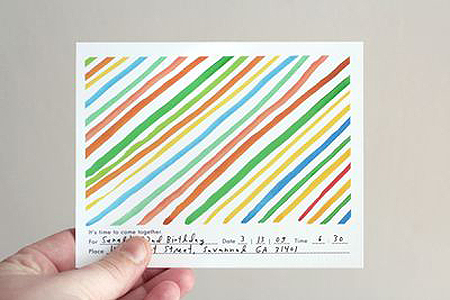 It's time to come together.
For Birthday Date 3 | 13 | 09 Time 6 30
Place Street, Savannah GA 31401